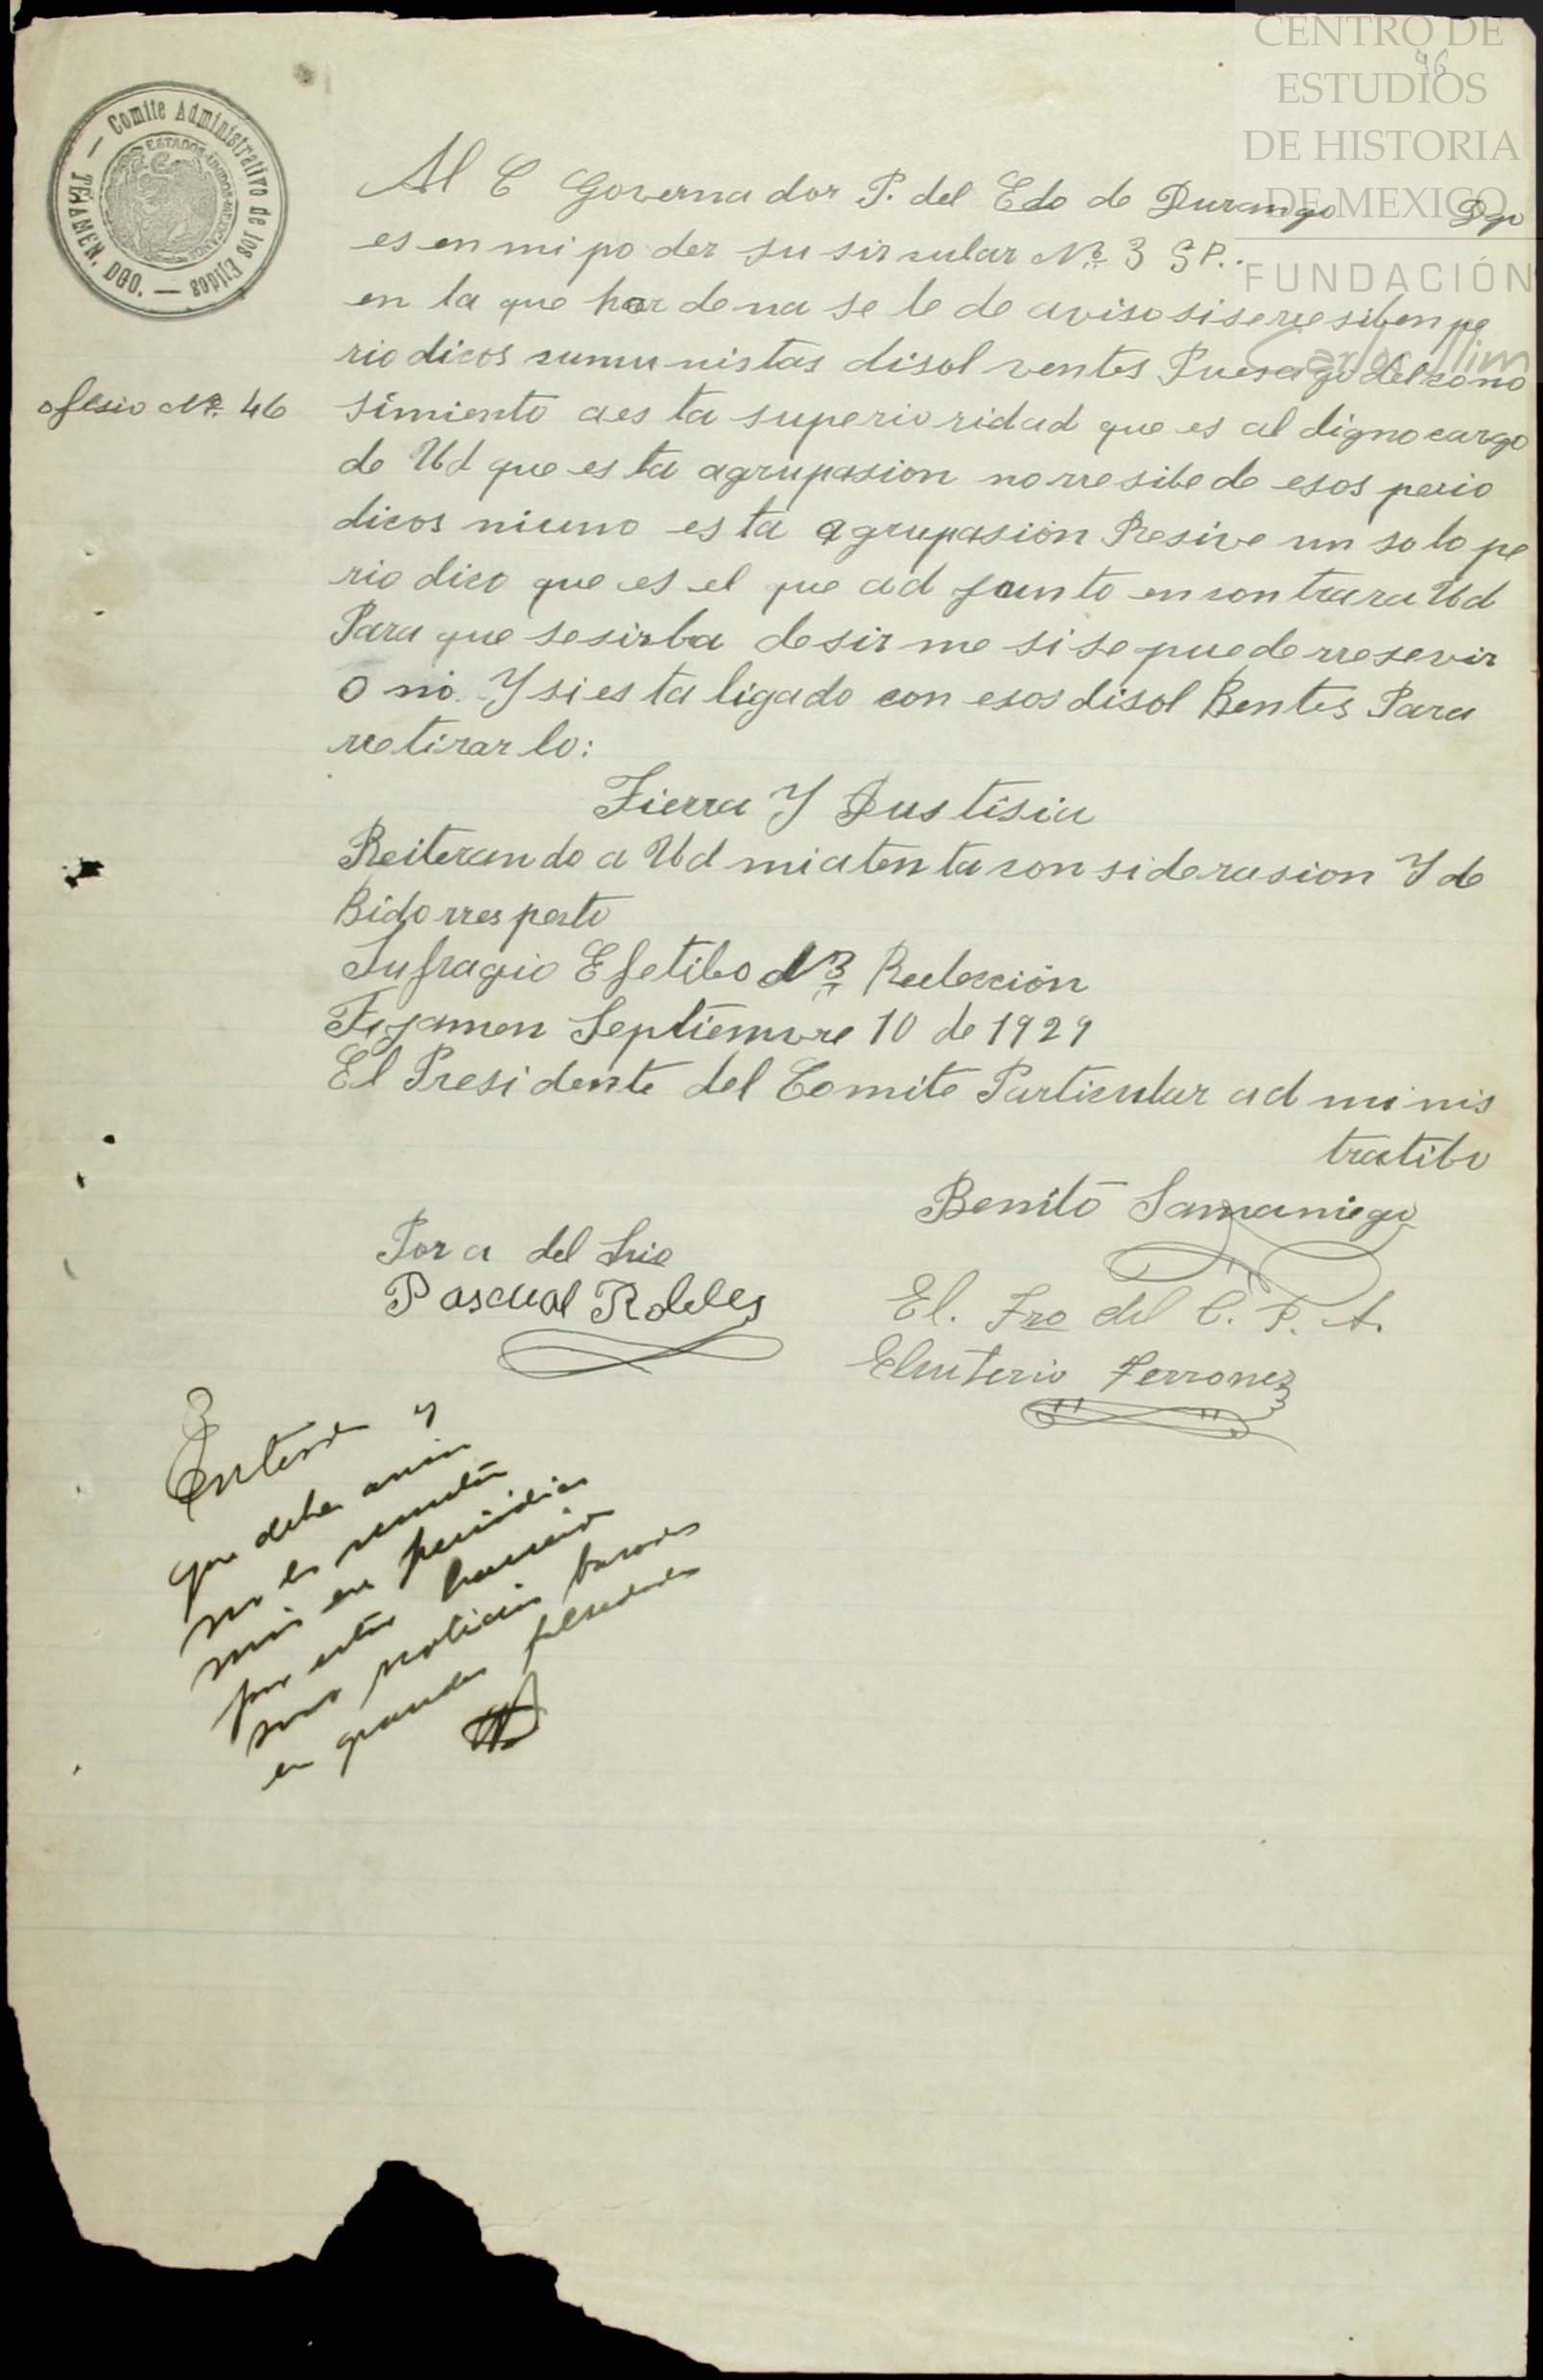 CENTRO DE
ESTUDIOS
DE HISTORIA
DE MEXICO
FUNDACIÓN
Carlos Slim
46
Comite Administrativo de los Ejidos
TEJAMEN, DGO.
ESTADOS UNIDOS MEXICANOS
Al C Governador P. del Edo de Durango Dgo
es en mi poder su sircular Nº 3 S P..
en la que hordena se le de aviso si se rresiben pe
riodicos cumunistas disolventes Pues ago del cono
ofisio Nº 46
simiento a esta superioridad que es al digno cargo
de Ud que esta agrupasion no rresibe de esos perio
dicos niuno esta agrupasión Resive un solo pe
riodico que es el que adjunto encontrara Ud
Para que se sirba desirme si se puede rresevir
O no. Y si esta ligado con esos disolBentes Para
rretirarlo:
Tierra Y Justisia
Reiterando a Ud mi atenta consideracion Y de
Bido rrespecto
Sufragio Efetibo Nº Relección
Tejamen Septiemvre 10 de 1929
El Presidente del Comite Particular adminis
tratibo
Benito Samaniego
Por a del Srio
Pascual Robles
El. Tro del C. P. A.
Eleuterio Terrones
Enterado y
que debe
no es
más ese periódico
por estar haciendo
sus noticias basadas
en grandes falsedades